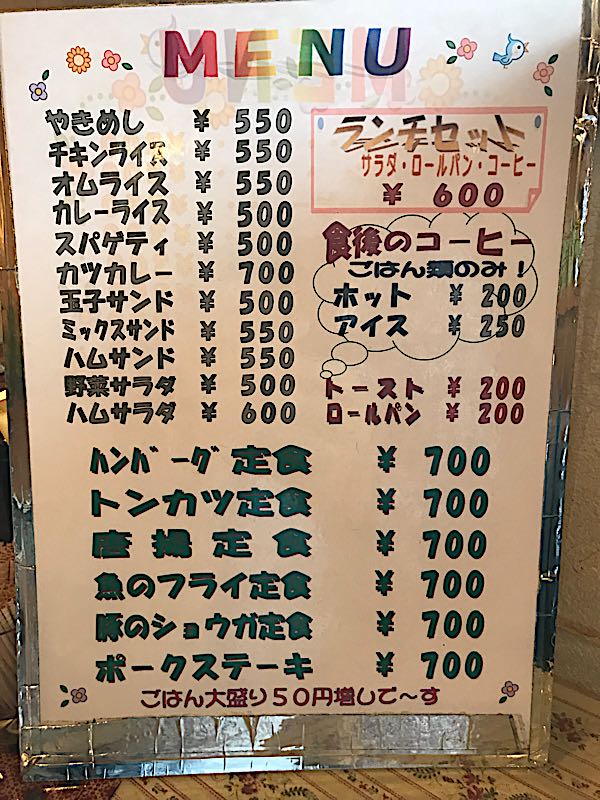 MENU
やきめし ¥ 550
チキンライス ¥ 550
オムライス ¥ 550
カレーライス ¥ 500
スパゲティ ¥ 500
カツカレー ¥ 700
玉子サンド ¥ 500
ミックスサンド ¥ 550
ハムサンド ¥ 550
野菜サラダ ¥ 500
ハムサラダ ¥ 600
ランチセット
サラダ・ロールパン・コーヒー
¥ 600
食後のコーヒー
ごはん類のみ!
ホット ¥ 200
アイス ¥ 250
トースト ¥ 200
ロールパン ¥ 200
ハンバーグ 定食 ¥ 700
トンカツ定食 ¥ 700
唐揚定食 ¥ 700
魚のフライ定食 ¥ 700
豚のショウガ定食 ¥ 700
ポークステーキ ¥ 700
ごはん大盛り50円増しで〜す